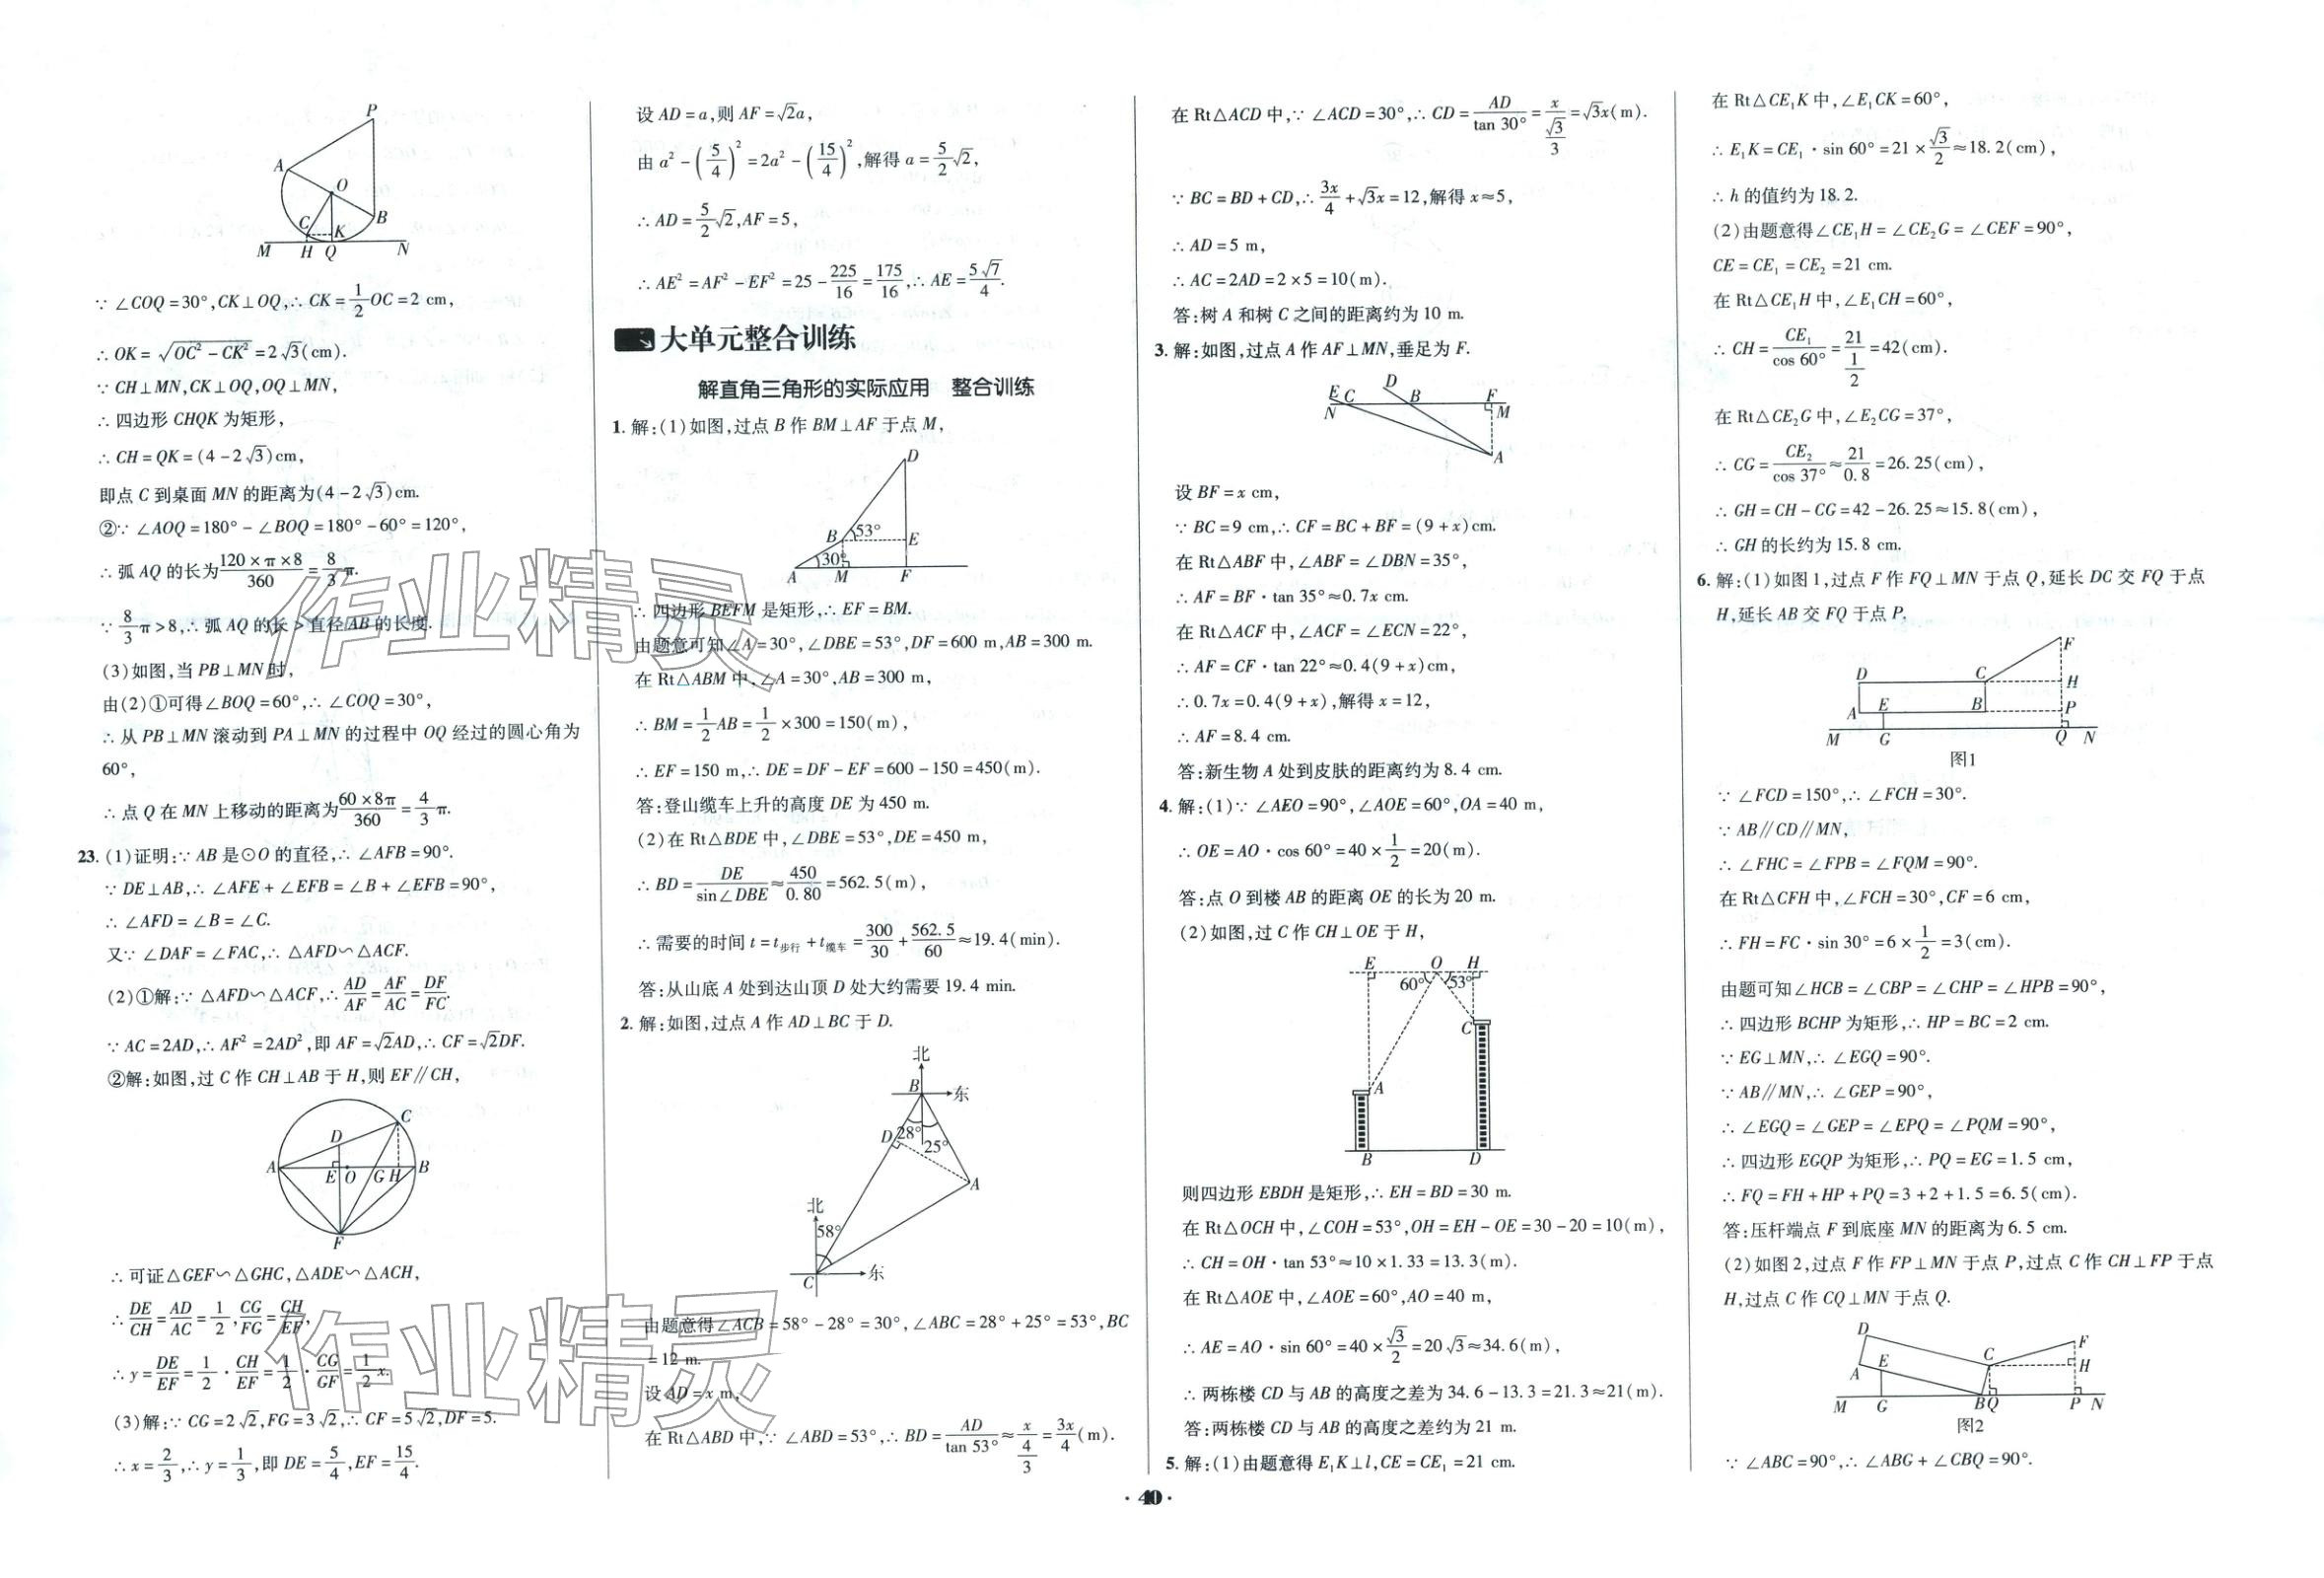 P
A
O
C
B
K
M
H
Q
N
∵ ∠COQ=30°,CK⊥OQ,∴ CK=1/2 OC=2 cm,
∴ OK=√(OC²-CK²)=2√3(cm).
∵ CH⊥MN,CK⊥OQ,OQ⊥MN,
∴ 四边形 CHQK 为矩形,
∴ CH=QK=(4-2√3)cm,
即点 C 到桌面 MN 的距离为(4-2√3)cm.
②∵ ∠AOQ=180°-∠BOQ=180°-60°=120°,
∴ 弧 AQ 的长为(120×π×8)/360=8/3 π.
∵ 8/3 π>8,∴ 弧 AQ 的长>直径 AB 的长度.
(3)如图,当 PB⊥MN 时,
由(2)①可得∠BOQ=60°,∴ ∠COQ=30°,
∴ 从 PB⊥MN 滚动到 PA⊥MN 的过程中 OQ 经过的圆心角为
60°,
∴ 点 Q 在 MN 上移动的距离为(60×8π)/360=4/3 π.
23. (1)证明:∵ AB 是⊙O 的直径,∴ ∠AFB=90°.
∵ DE⊥AB,∴ ∠AFE+∠EFB=∠B+∠EFB=90°,
∴ ∠AFD=∠B=∠C.
又∵ ∠DAF=∠FAC,∴ △AFD∽△ACF.
(2)①解:∵ △AFD∽△ACF,∴ AD/AF=AF/AC=DF/FC.
∵ AC=2AD,∴ AF²=2AD²,即 AF=√2AD,∴ CF=√2DF.
②解:如图,过 C 作 CH⊥AB 于 H,则 EF∥CH,
C
D
A
E
O
G
H
B
F
∴ 可证△GEF∽△GHC,△ADE∽△ACH,
∴ DE/CH=AD/AC=1/2,CG/FG=CH/EF,
∴ y=DE/EF=1/2·CH/EF=1/2·CG/GF=1/2 x.
(3)解:∵ CG=2√2,FG=3√2,∴ CF=5√2,DF=5.
∴ x=2/3,∴ y=1/3,即 DE=5/4,EF=15/4.
设 AD=a,则 AF=√2a,
由 a²-(5/4)²=2a²-(15/4)²,解得 a=5/2√2,
∴ AD=5/2√2,AF=5,
∴ AE²=AF²-EF²=25-225/16=175/16,∴ AE=5√7/4.
大单元整合训练
解直角三角形的实际应用 整合训练
1. 解:(1)如图,过点 B 作 BM⊥AF 于点 M,
D
B
53°
E
30°
A
M
F
∴ 四边形 BEFM 是矩形,∴ EF=BM.
由题意可知∠A=30°,∠DBE=53°,DF=600 m,AB=300 m.
在 Rt△ABM 中,∠A=30°,AB=300 m,
∴ BM=1/2 AB=1/2×300=150(m),
∴ EF=150 m,∴ DE=DF-EF=600-150=450(m).
答:登山缆车上升的高度 DE 为 450 m.
(2)在 Rt△BDE 中,∠DBE=53°,DE=450 m,
∴ BD=DE/sin∠DBE≈450/0.80=562.5(m),
∴ 需要的时间 t=t步行+t缆车=300/30+562.5/60≈19.4(min).
答:从山底 A 处到达山顶 D 处大约需要 19.4 min.
2. 解:如图,过点 A 作 AD⊥BC 于 D.
北
B
东
D
28°
25°
A
北
58°
C
东
由题意得∠ACB=58°-28°=30°,∠ABC=28°+25°=53°,BC
=12 m.
设 AD=x m,
在 Rt△ABD 中,∵ ∠ABD=53°,∴ BD=AD/tan 53°≈x/(4/3)=3x/4(m).
在 Rt△ACD 中,∵ ∠ACD=30°,∴ CD=AD/tan 30°=x/(√3/3)=√3x(m).
∵ BC=BD+CD,∴ 3x/4+√3x=12,解得 x≈5,
∴ AD=5 m,
∴ AC=2AD=2×5=10(m).
答:树 A 和树 C 之间的距离约为 10 m.
3. 解:如图,过点 A 作 AF⊥MN,垂足为 F.
E
C
D
B
F
N
M
A
设 BF=x cm,
∵ BC=9 cm,∴ CF=BC+BF=(9+x)cm.
在 Rt△ABF 中,∠ABF=∠DBN=35°,
∴ AF=BF·tan 35°≈0.7x cm.
在 Rt△ACF 中,∠ACF=∠ECN=22°,
∴ AF=CF·tan 22°≈0.4(9+x)cm,
∴ 0.7x=0.4(9+x),解得 x=12,
∴ AF=8.4 cm.
答:新生物 A 处到皮肤的距离约为 8.4 cm.
4. 解:(1)∵ ∠AEO=90°,∠AOE=60°,OA=40 m,
∴ OE=AO·cos 60°=40×1/2=20(m).
答:点 O 到楼 AB 的距离 OE 的长为 20 m.
(2)如图,过 C 作 CH⊥OE 于 H,
E
O
H
60°
53°
C
A
B
D
则四边形 EBDH 是矩形,∴ EH=BD=30 m.
在 Rt△OCH 中,∠COH=53°,OH=EH-OE=30-20=10(m),
∴ CH=OH·tan 53°≈10×1.33=13.3(m).
在 Rt△AOE 中,∠AOE=60°,AO=40 m,
∴ AE=AO·sin 60°=40×√3/2=20√3≈34.6(m),
∴ 两栋楼 CD 与 AB 的高度之差为 34.6-13.3=21.3≈21(m).
答:两栋楼 CD 与 AB 的高度之差约为 21 m.
5. 解:(1)由题意得 E₁K⊥l,CE=CE₁=21 cm.
在 Rt△CE₁K 中,∠E₁CK=60°,
∴ E₁K=CE₁·sin 60°=21×√3/2≈18.2(cm),
∴ h 的值约为 18.2.
(2)由题意得∠CE₁H=∠CE₂G=∠CEF=90°,
CE=CE₁=CE₂=21 cm.
在 Rt△CE₁H 中,∠E₁CH=60°,
∴ CH=CE₁/cos 60°=21/(1/2)=42(cm).
在 Rt△CE₂G 中,∠E₂CG=37°,
∴ CG=CE₂/cos 37°≈21/0.8=26.25(cm),
∴ GH=CH-CG=42-26.25≈15.8(cm),
∴ GH 的长约为 15.8 cm.
6. 解:(1)如图 1,过点 F 作 FQ⊥MN 于点 Q,延长 DC 交 FQ 于点
H,延长 AB 交 FQ 于点 P.
F
D
C
H
A
E
B
P
M
G
Q
N
图1
∵ ∠FCD=150°,∴ ∠FCH=30°.
∵ AB∥CD∥MN,
∴ ∠FHC=∠FPB=∠FQM=90°.
在 Rt△CFH 中,∠FCH=30°,CF=6 cm,
∴ FH=FC·sin 30°=6×1/2=3(cm).
由题可知∠HCB=∠CBP=∠CHP=∠HPB=90°,
∴ 四边形 BCHP 为矩形,∴ HP=BC=2 cm.
∵ EG⊥MN,∴ ∠EGQ=90°.
∵ AB∥MN,∴ ∠GEP=90°,
∴ ∠EGQ=∠GEP=∠EPQ=∠PQM=90°,
∴ 四边形 EGQP 为矩形,∴ PQ=EG=1.5 cm,
∴ FQ=FH+HP+PQ=3+2+1.5=6.5(cm).
答:压杆端点 F 到底座 MN 的距离为 6.5 cm.
(2)如图 2,过点 F 作 FP⊥MN 于点 P,过点 C 作 CH⊥FP 于点
H,过点 C 作 CQ⊥MN 于点 Q.
D
F
C
A
E
H
M
G
B
Q
P
N
图2
∵ ∠ABC=90°,∴ ∠ABG+∠CBQ=90°.
· 40 ·
作业精灵
作业精灵